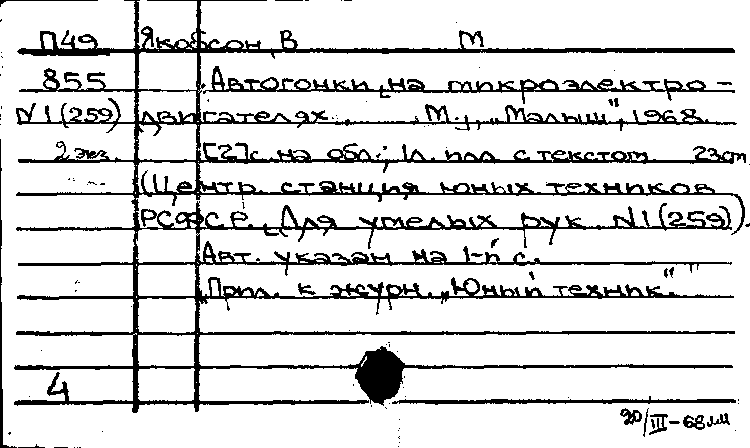 П49 Якобсон, В М
855 Автогонки на микроэлектро-
N1(259) двигателях. М., „Малыш", 1968.
2 экз. [2] с. на обл.; 1л. илл. с текстом 23см
(Центр. станция юных техников
РСФСР. Для умелых рук. N1(259)).
Авт. указан на 1-й с.
„Прил. к журн. „Юный техник."
4
20/III-68